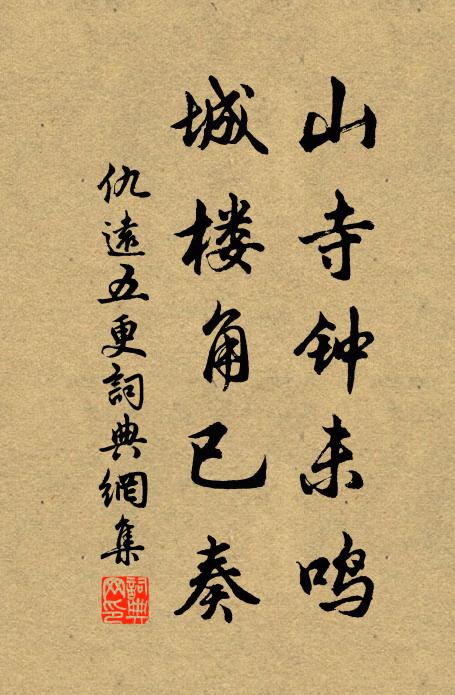 山寺钟未鸣
城楼角已奏
仇遠五更詞典網集
詞典网印